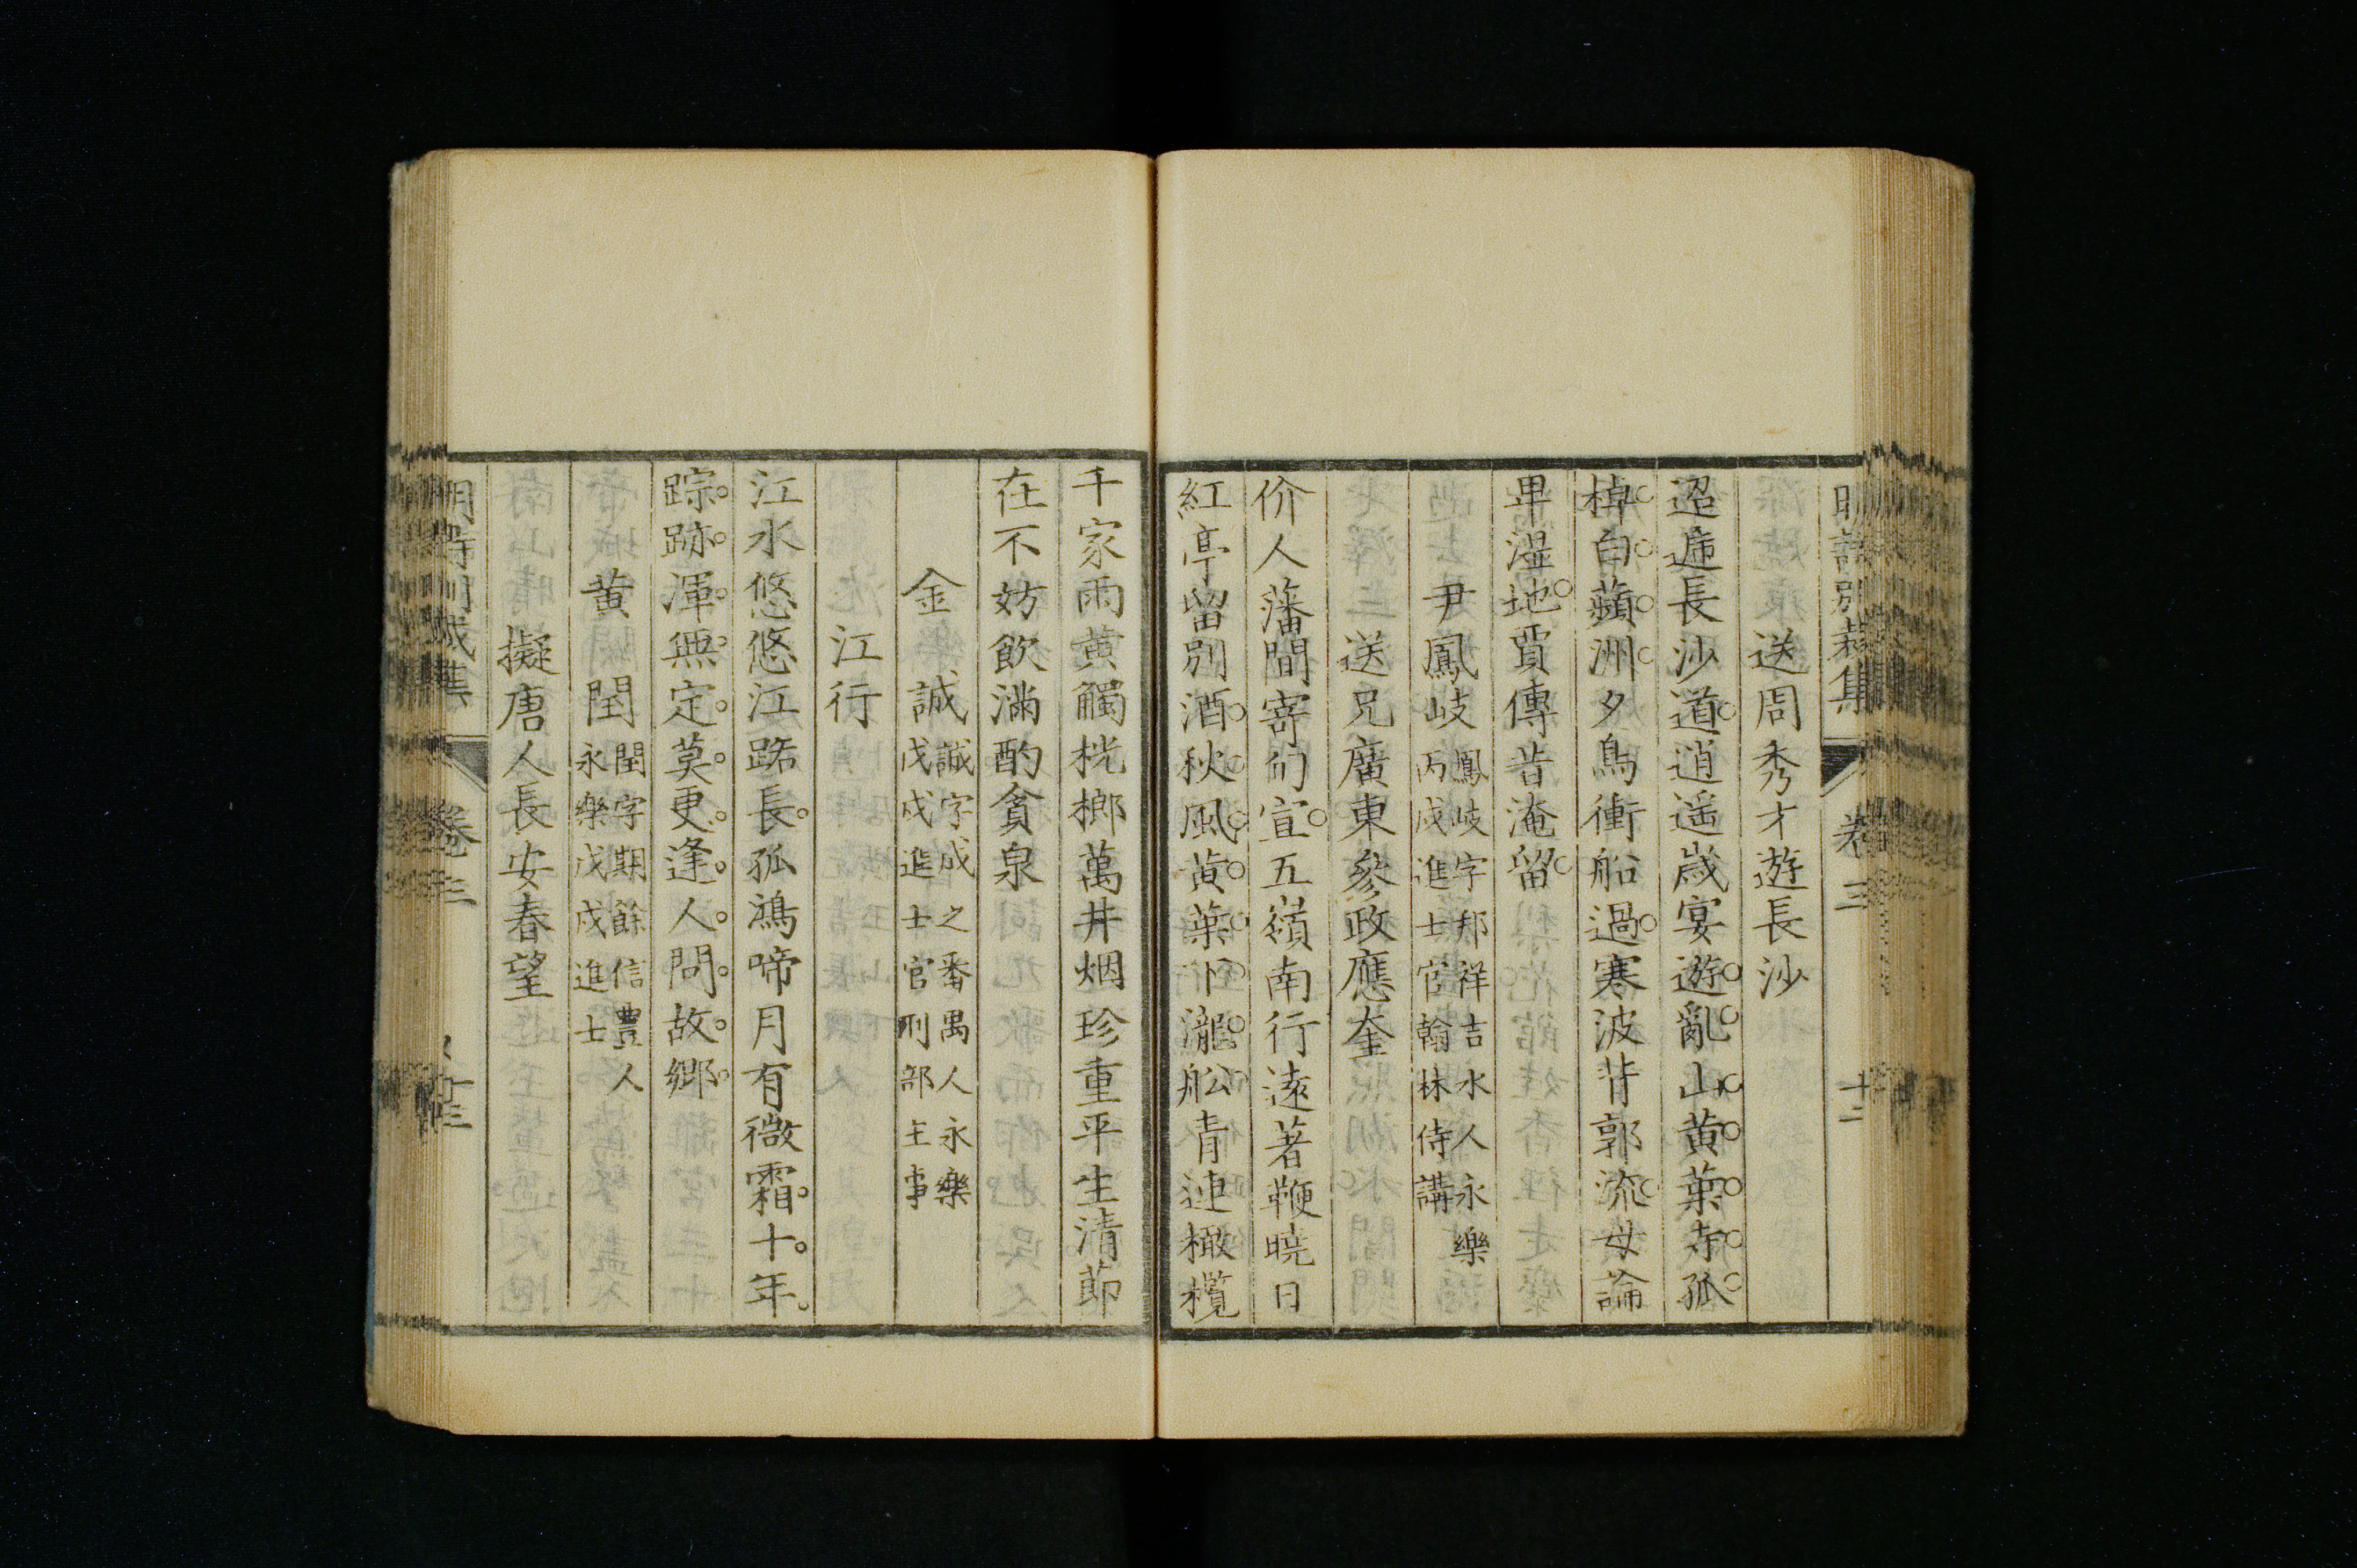 明詩別裁集 卷三 十二
送周秀才遊長沙
迢遞長沙道逍遥歲宴遊亂山黄葉寺孤
棹白蘋洲夕鳥衝船過寒波背郭流毋論
卑濕地賈傳昔淹留
尹鳳岐 鳳岐字邦祥吉水人永樂
丙戌進士官翰林侍講
送兄廣東參政應奎
价人藩閫寄们宣五嶺南行遠著鞭曉日
紅亭留别酒秋風黄葉下瀧船青連橄欖
千家雨黄觸桄榔萬井烟珍重平生清節
在不妨飲滿酌貪泉
金誠 誠字誠之番禺人永樂
戊戌進士官刑部主事
江行
江水悠悠江路長孤鴻啼月有微霜十年
踪跡渾無定莫更逢人問故鄉
黄閏 閏字期餘信豐人
永樂戊戌進士
擬唐人長安春望
卷三